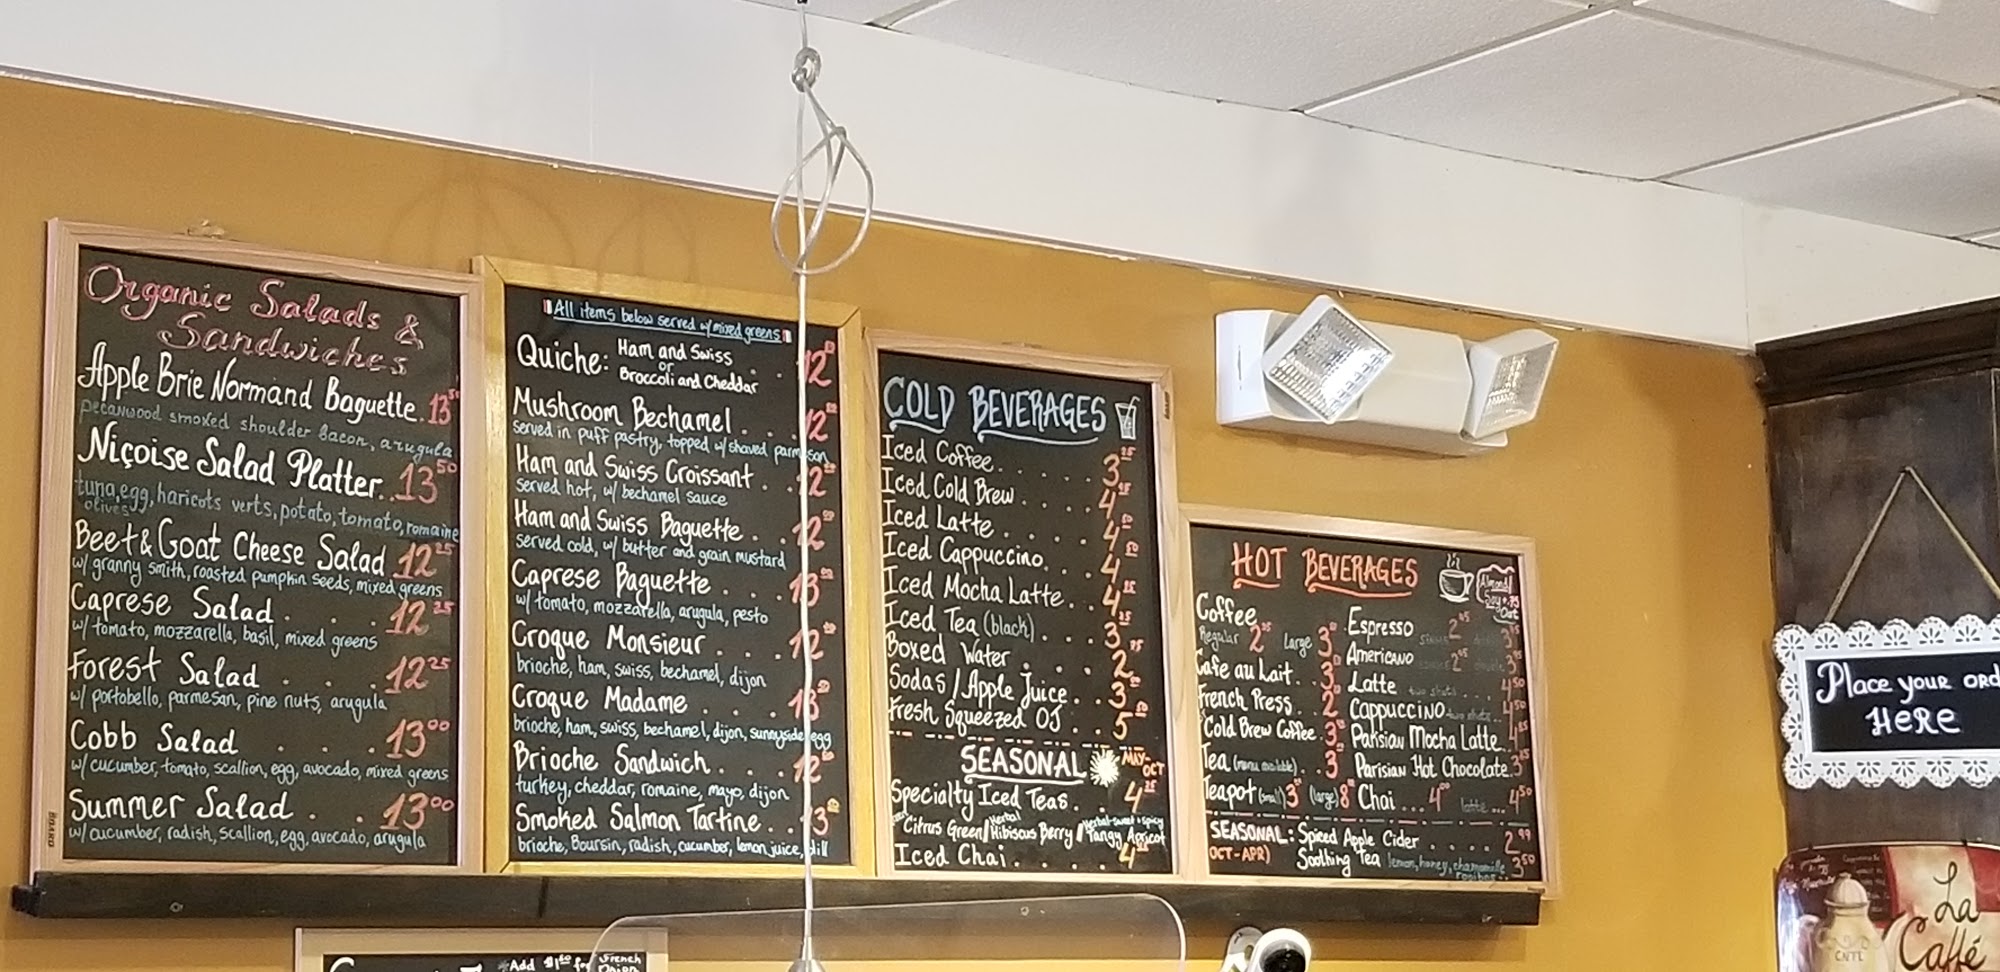 Organic Salads &
Sandwiches
Apple Brie Normand Baguette. 13⁵⁰
pecanwood smoked shoulder bacon, arugula
Niçoise Salad Platter.. 13⁵⁰
tuna, egg, haricots verts, potato, tomato, romaine
olives
Beet & Goat Cheese Salad 12²⁵
w/ granny smith, roasted pumpkin seeds, mixed greens
Caprese Salad . . . . 12²⁵
w/ tomato, mozzarella, basil, mixed greens
Forest Salad . . . . 12²⁵
w/ portobello, parmesan, pine nuts, arugula
Cobb Salad . . . . 13⁰⁰
w/ cucumber, tomato, scallion, egg, avocado, mixed greens
Summer Salad . . 13⁰⁰
w/ cucumber, radish, scallion, egg, avocado, arugula
All items below served w/ mixed greens
Quiche: Ham and Swiss
or
Broccoli and Cheddar . . 12
Mushroom Bechamel . . . 12
served in puff pastry, topped w/ shaved parmesan
Ham and Swiss Croissant . . 12
served hot, w/ bechamel sauce
Ham and Swiss Baguette . . 12
served cold, w/ butter and grain mustard
Caprese Baguette . . . 13
w/ tomato, mozzarella, arugula, pesto
Croque Monsieur . . . 12
brioche, ham, swiss, bechamel, dijon
Croque Madame . . . 13
brioche, ham, swiss, bechamel, dijon, sunnyside egg
Brioche Sandwich . . . 12
turkey, cheddar, romaine, mayo, dijon
Smoked Salmon Tartine . . 13
brioche, Boursin, radish, cucumber, lemon juice, dill
COLD BEVERAGES
Iced Coffee . . . . 3
Iced Cold Brew . . . 4
Iced Latte . . . . . 4
Iced Cappuccino. . . 4
Iced Mocha Latte. . 4
Iced Tea (black) . . . 3
Boxed Water . . . . 2
Sodas / Apple Juice. . 3
Fresh Squeezed OJ . . 5
SEASONAL MAY-OCT
Specialty Iced Teas. . . 4
Citrus Green / Herbal Hibiscus Berry / Herbal-sweet + spicy Tangy Apricot
Iced Chai . . . . 4
HOT BEVERAGES
Almond/
Soy +.75
Oat
Coffee
Regular 2 Large 3
Cafe au Lait. . 3
French Press . . 2
Cold Brew Coffee . 3
Tea (menu available) . . 3
Teapot (small) 3 (large) 8
Espresso 2
Americano 2
Latte two shots . . . 4⁵⁰
Cappuccino two shots . . 4⁵⁰
Parisian Mocha Latte. 4
Parisian Hot Chocolate. 3
Chai . . . 4 latte . . . 4⁵⁰
SEASONAL: Spiced Apple Cider . . . . 2⁹⁹
OCT-APR) Soothing Tea lemon, honey, chamomile, 3⁵⁰
rooibos
Place your ORD
HERE
Add $1⁵⁰ for French
La
Caffé